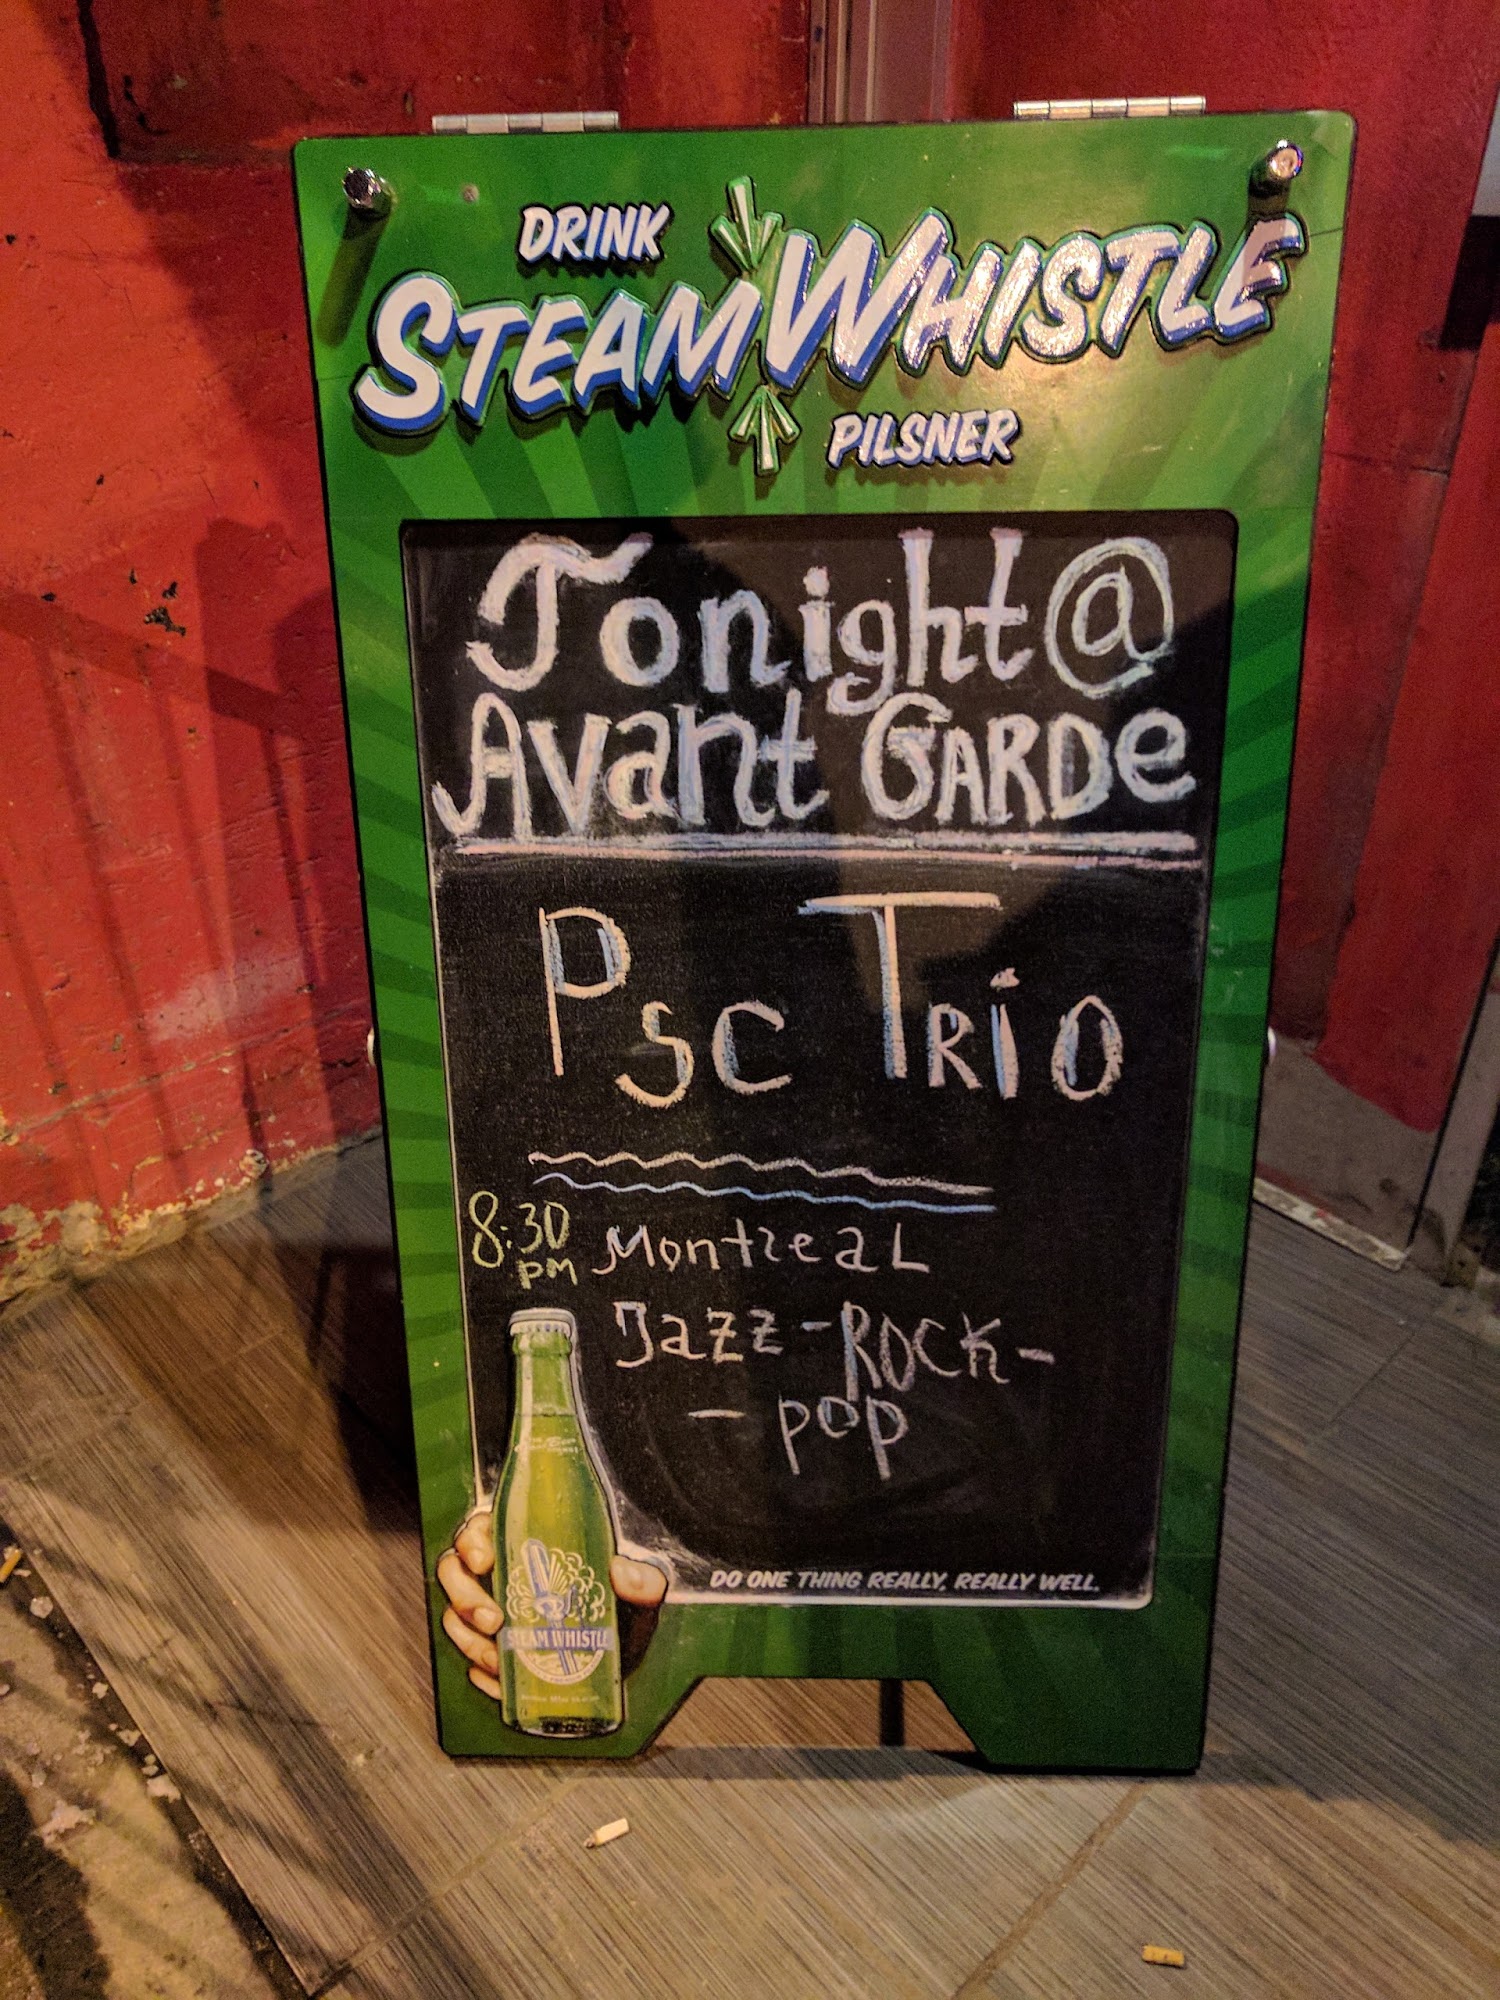 DRINK
STEAMWHISTLE
PILSNER
Tonight @
Avant GARDe
Psc TRiO
8:30 pm
Montreal
Jazz-ROCK-
- pop
STEAM WHISTLE
DO ONE THING REALLY, REALLY WELL.